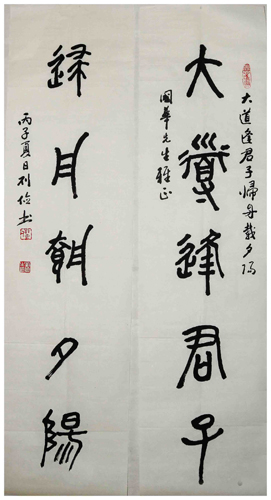 大道逢君子歸舟載夕陽
大道逢君子
國華先生雅正
歸舟載夕陽
丙子夏日